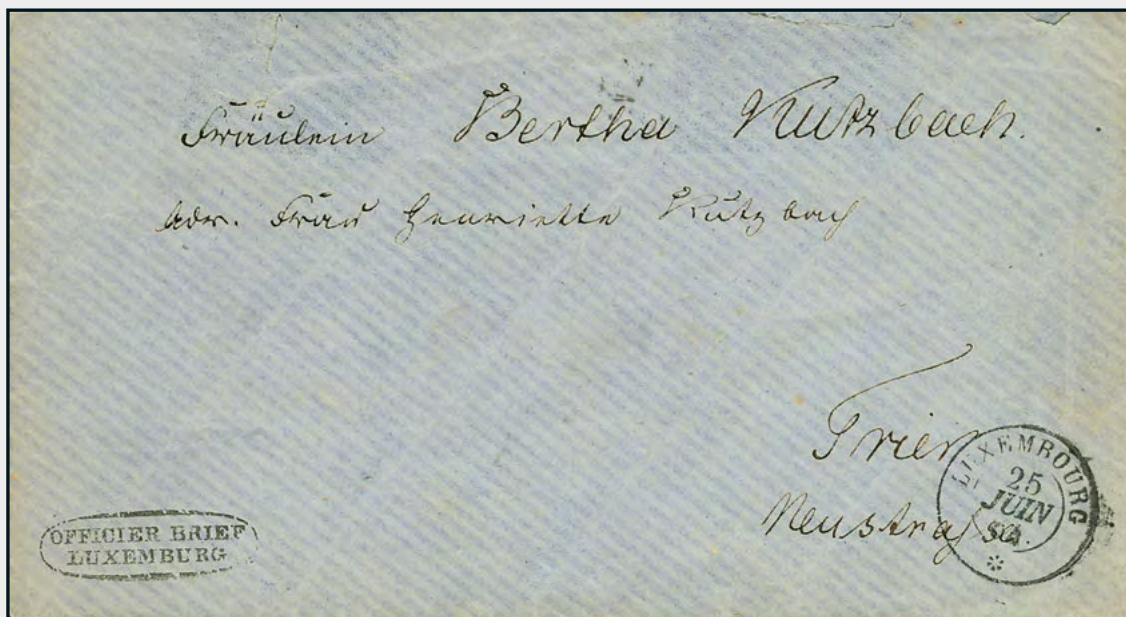 Fräulein Bertha Kutzbach.
adr. Frau Henriette Kutzbach
Trier
Neustraße
OFFICIER BRIEF
LUXEMBURG
LUXEMBOURG
25
JUIN